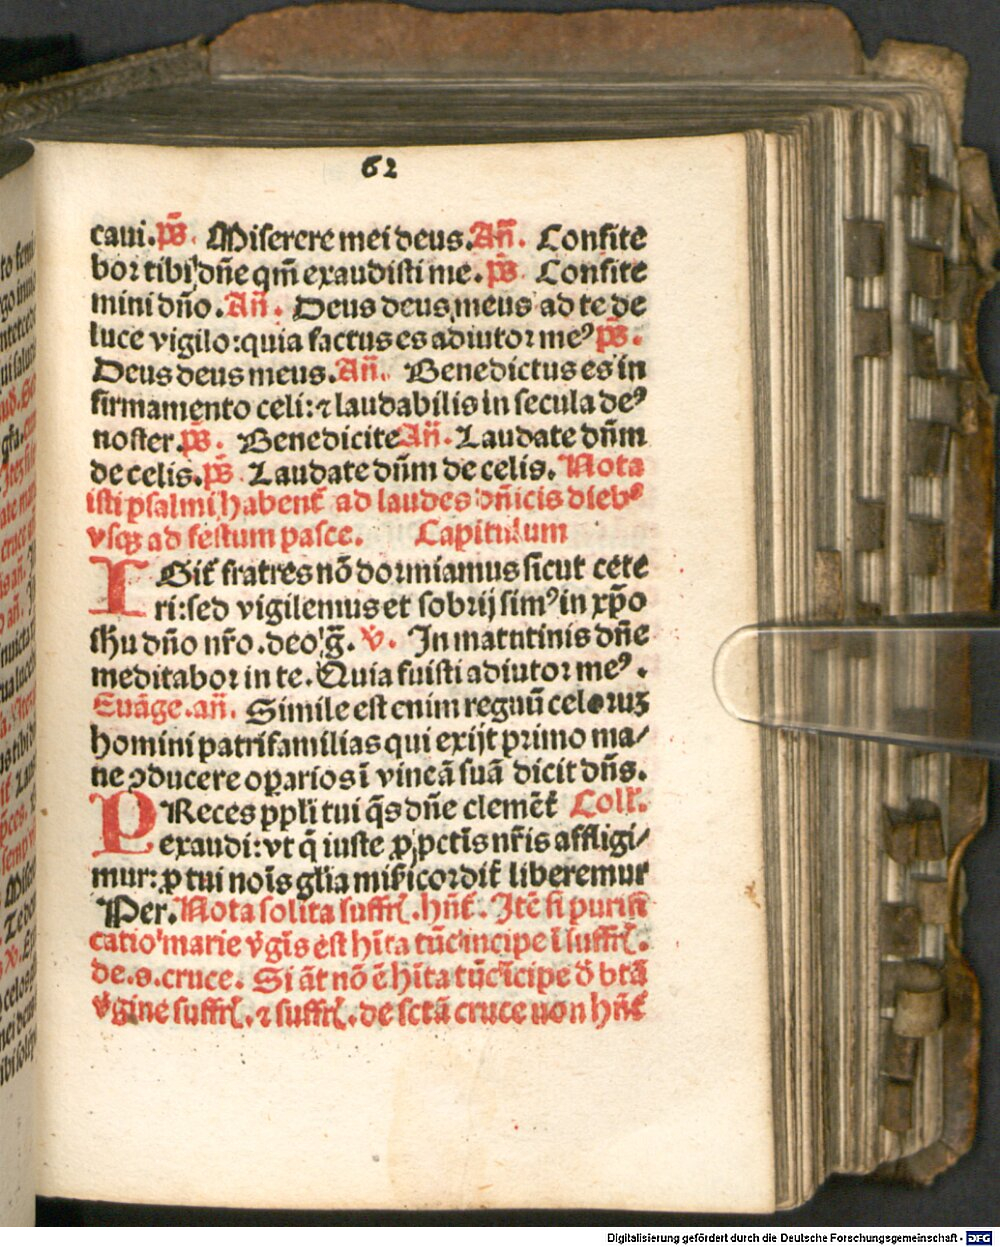 62
caui.ps̄. Miserere mei deus. Añ. Confite
bor tibi dñe qm̄ exaudisti me. ps̄ Confite
mini dño. Añ. Deus deus meus ad te de
luce vigilo: quia factus es adiutor meꝰ ps̄.
Deus deus meus. Añ. Benedictus es in
firmamento celi: ⁊ laudabilis in secula deꝰ
noster. ps̄. Benedicite Añ. Laudate dñm
de celis. ps̄. Laudate dñm de celis. Nota
isti psalmi habent̄ ad laudes dñicis diebꝰ
vsqꝫ ad festum pasce. Capitulum
IGit̄ fratres nō dormiamus sicut cete
ri: sed vigilemus et sobrij simꝰ in xp̄o
ihu dño nr̄o. deo g̃. v̄. In matutinis dñe
meditabor in te. Quia fuisti adiutor meꝰ.
Euāge. añ. Simile est enim regnū celoruꝫ
homini patrifamilias qui exijt primo ma/
ne ꝯducere oꝑarios ī vineā suā dicit dñs.
PReces ppl̄i tui q̄s dñe clemēt̄ Coll̄.
exaudi: vt q̄ iuste ꝓ pctīs nr̄is affligi/
mur: ꝓ tui noīs gl̄ia misēricordit̄ liberemur
Per. Nota solita suffrī. hñt̄. Itē si purifi
catio marie v̄gīs est hīta tūc incipe ī suffrī.
de. s. cruce. Si āt nō ē hīta tūc īcipe d̄ btā
v̄gine suffrī. ⁊ suffrī. de sctā cruce non hñt̄
Digitalisierung gefördert durch die Deutsche Forschungsgemeinschaft - DFG